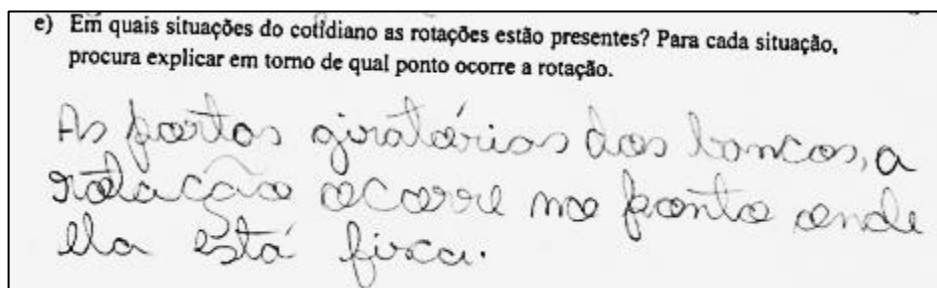 e) Em quais situações do cotidiano as rotações estão presentes? Para cada situação,
procura explicar em torno de qual ponto ocorre a rotação.
As portas giratórias dos bancos, a
rotação ocorre no ponto onde
ela está fixa.